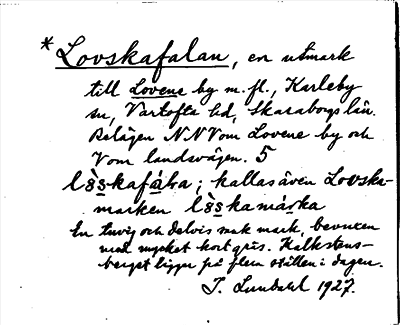 * Lovskafalan, en utmark
till Lovene by m. fl., Karleby
sn, Vartofta hd, Skaraborgs län.
Belägen NNV om Lovene by och
V om landsvägen. 5
kallas även Lovska-
marken
En tuvig och delvis mak mark, bevuxen
med mycket kort gräs. Kalkstens-
berget ligger på flera ställen i dagen.
J. Lundahl 1927.